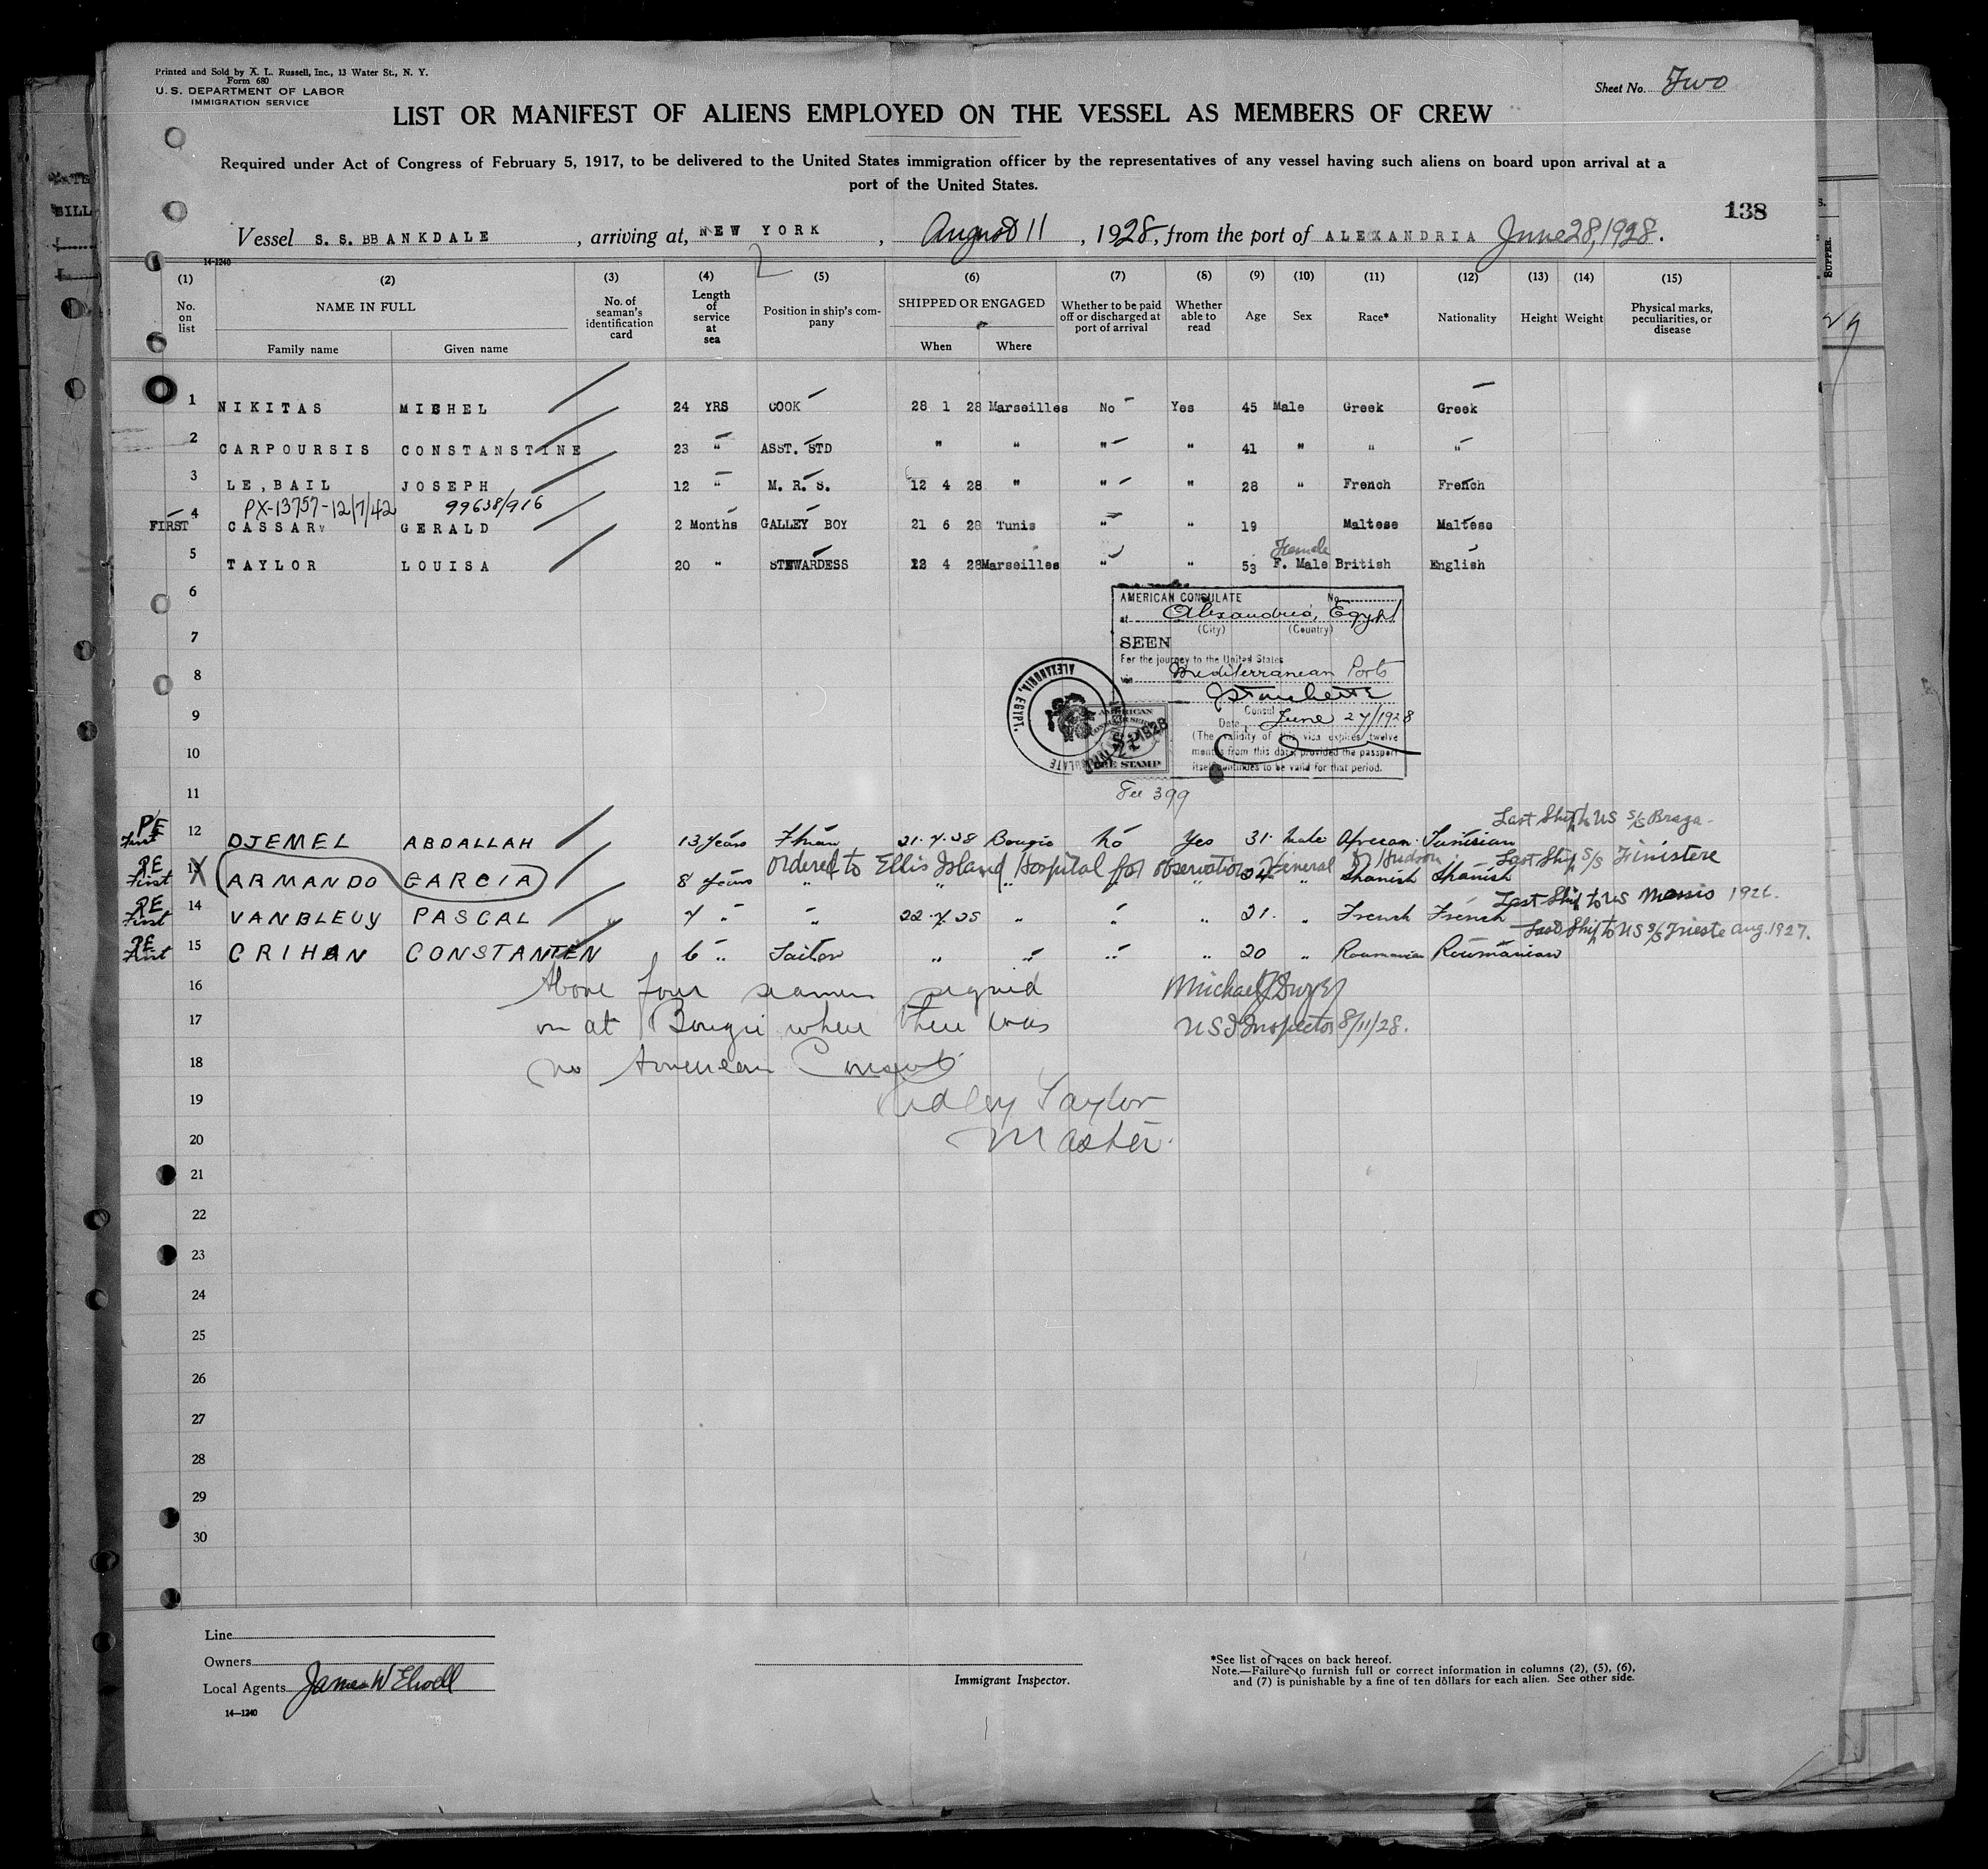 Printed and Sold by A. L. Russell, Inc., 13 Water St., N. Y.
Form 680
U. S. DEPARTMENT OF LABOR
IMMIGRATION SERVICE
Sheet No. Two
LIST OR MANIFEST OF ALIENS EMPLOYED ON THE VESSEL AS MEMBERS OF CREW
Required under Act of Congress of February 5, 1917, to be delivered to the United States immigration officer by the representatives of any vessel having such aliens on board upon arrival at a
port of the United States.
138
Vessel S. S. BBANKDALE, arriving at, NEW YORK, August 11, 1928, from the port of ALEXANDRIA June 28, 1928.
14-1240
(1) (2) (3) (4) (5) (6) (7) (8) (9) (10) (11) (12) (13) (14) (15)
No. on list NAME IN FULL Family name Given name No. of seaman's identification card Length of service at sea Position in ship's company SHIPPED OR ENGAGED When Where Whether to be paid off or discharged at port of arrival Whether able to read Age Sex Race* Nationality Height Weight Physical marks, peculiarities, or disease
1 NIKITAS MICHEL 24 YRS COOK 28 1 28 Marseilles No Yes 45 Male Greek Greek
2 CARPOURSIS CONSTANSTINE 23 " ASST. STD " " " " 41 " " "
3 LE,BAIL JOSEPH 12 " M. R. S. 12 4 28 " " " 28 " French French
PX-13757-12/7/42 99638/916
FIRST 4 CASSAR GERALD 2 Months GALLEY BOY 21 6 28 Tunis " " 19 Maltese Maltese
Female
5 TAYLOR LOUISA 20 " STEWARDESS 12 4 28 Marseilles " " 53 F. Male British English
6
AMERICAN CONSULATE No.
at Alexandria, Egypt
(City) (Country)
7
SEEN
For the journey to the United States
8
via Mediterranean Ports
ALEXANDRIA, EGYPT.
9
Consul
Date June 27/1928
(The validity of this visa expires twelve
10
months from this date provided the passport
itself continues to be valid for that period.
FEE STAMP
11
Fee 399
Last Ship to US S/S Braga
PE First 12 DJEMEL ABDALLAH 13 years F'man 21.7.28 Bougie No Yes 31 Male African Tunisian
Ordered to Ellis Island Hospital for observation Venereal Dr Hudson Last Ship S/S Finistere
PE First 13 ARMANDO GARCIA 8 years " " " " " 24 " Spanish Spanish
Last Ship to US 1926.
PE First 14 VANBLEUY PASCAL 7 " " 22.7.28 " " " 21 " French French
Last Ship to US S/S Trieste Aug. 1927.
PE First 15 CRIHAN CONSTANTEN 6 " Sailor " " " " 20 " Roumanian Roumanian
16 Above four seamen signed
17 on at Bougie where there was
US Inspector 8/11/28.
18 no American Consul
19 Taylor
20 Master
21
22
23
24
25
26
27
28
29
30
Line
Owners
Local Agents James W Elwell
14—1240
Immigrant Inspector.
*See list of races on back hereof.
Note.—Failure to furnish full or correct information in columns (2), (5), (6),
and (7) is punishable by a fine of ten dollars for each alien. See other side.